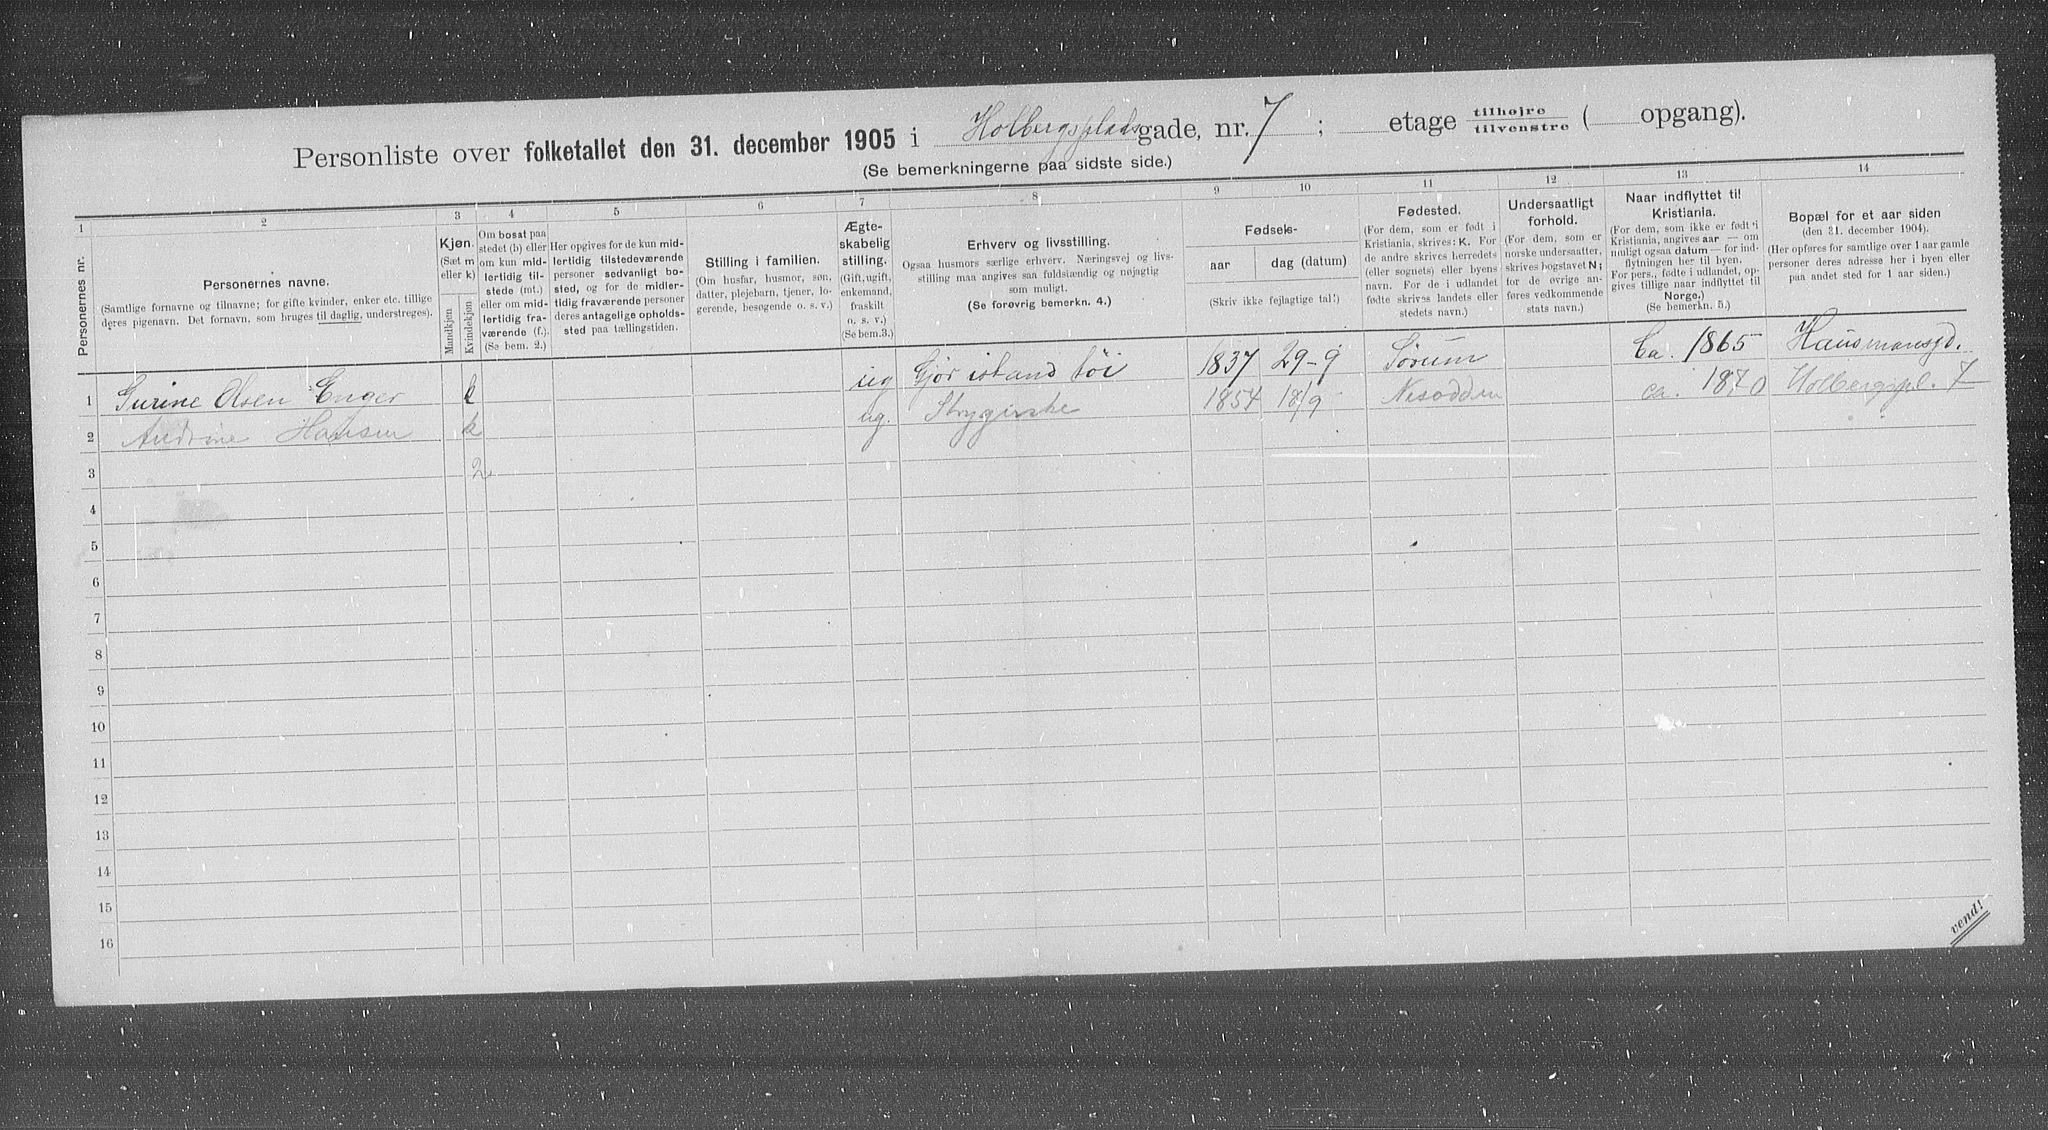 Personliste over folketallet den 31. december 1905 i Holbergsplads gade, nr. 7; etage tilhøjre / tilvenstre ( opgang).
(Se bemerkningerne paa sidste side.)
1 2 3 4 5 6 7 8 9 10 11 12 13 14
Personernes nr.
Personernes navne.
(Samtlige fornavne og tilnavne; for gifte kvinder, enker etc. tillige
deres pigenavn. Det fornavn, som bruges til daglig, understreges).
Kjøn.
(Sæt m
eller k)
Mandkjøn
Kvindekjøn
Om bosat paa
stedet (b) eller
om kun mid-
lertidig til-
stede (mt.)
eller om mid-
lertidig fra-
værende (f.).
(Se bem. 2.)
Her opgives for de kun mid-
lertidig tilstedeværende
personer sedvanligt bo-
sted, og for de midler-
tidig fraværende personer
deres antagelige opholds-
sted paa tællingstiden.
Stilling i familien.
(Om husfar, husmor, søn,
datter, plejebarn, tjener, lo-
gerende, besøgende o. s. v.)
Ægte-
skabelig
stilling.
(Gift, ugift,
enkemand,
fraskilt
o. s. v.)
(Se bem.3.)
Erhverv og livsstilling.
Ogsaa husmors særlige erhverv. Næringsvej og livs-
stilling maa angives saa fuldstændig og nøjagtig
som muligt.
(Se forøvrig bemerkn. 4.)
Fødsels-
aar
dag (datum)
(Skriv ikke fejlagtige tal!)
Fødested.
(For dem, som er født i
Kristiania, skrives: K. For
de andre skrives herredets
(eller sognets) eller byens
navn. For de i udlandet
fødte skrives landets eller
stedets navn.)
Undersaatligt
forhold.
(For dem, som er
norske undersaatter,
skrives bogstavet N;
for de øvrige an-
føres vedkommende
stats navn.)
Naar indflyttet til
Kristiania.
(For dem, som ikke er født i
Kristiania, angives aar — om
muligt ogsaa datum — for ind-
flytningen her til byen.
For pers., fødte i udlandet, op-
gives tillige naar indflyttet til
Norge.)
(Se bemerkn. 5.)
Bopæl for et aar siden
(den 31. december 1904).
(Her opføres for samtlige over 1 aar gamle
personer deres adresse her i byen eller
paa andet sted for 1 aar siden.)
1 Gurine Olsen Enger k ug Gjør istand tøi 1837 29-9 Sørum Ca. 1865 Hausmansgd.
2 Andrine Hansen k ug. Strygerske 1854 18/9 Nesodden ca. 1870 Holbergspl. 7
3 2
4
5
6
7
8
9
10
11
12
13
14
15
16
vend!